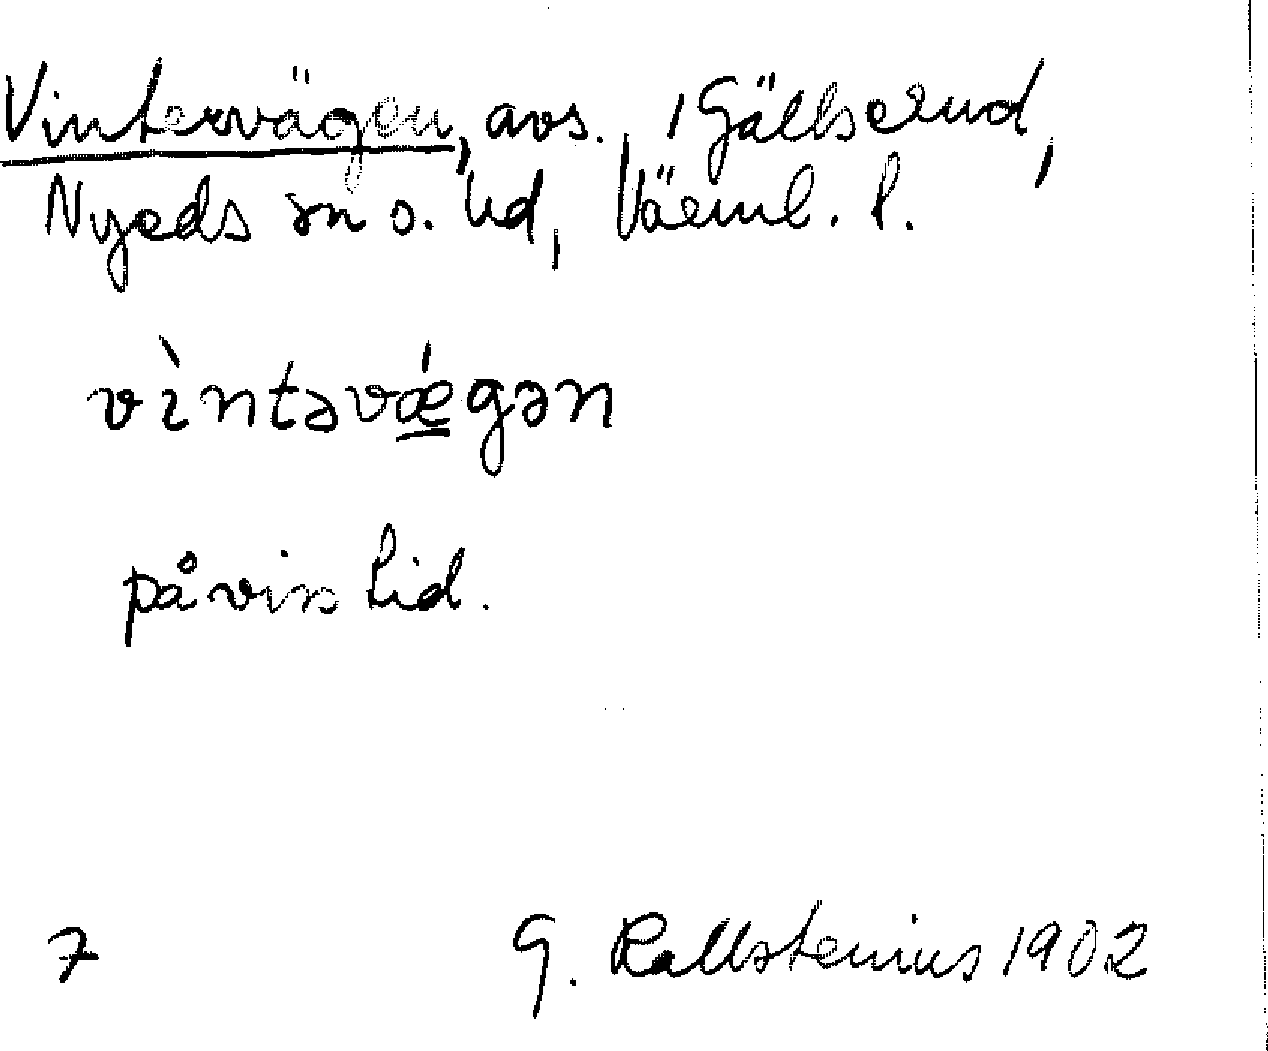 Vintervägen, avs. 1 Gällserud,
Nyeds sn o. hd, Värml. l.
vìntəvǽgən
på viss tid.
7 G. Kallstenius 1902